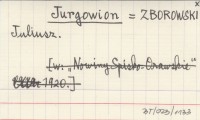 x
Jurgowion = ZBOROWSKI
Juliusz.
[w: „Nowiny Spisko-Orawskie"
1920.]
BT/023/1133